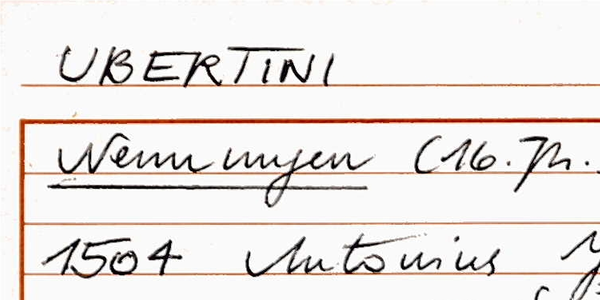 UBERTINI
Nennungen (16. Jh.
1504 Antonius